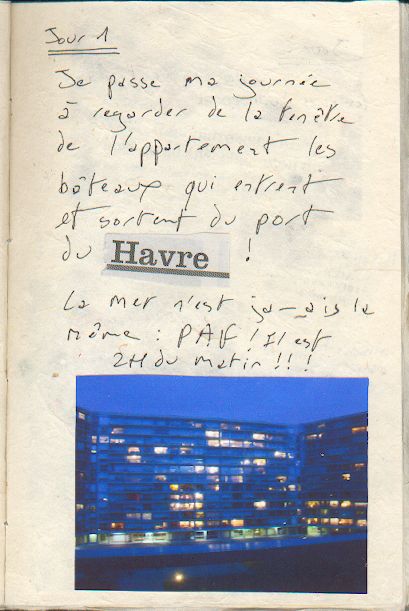 Jour 1
Je passe ma journée
à regarder de la fenêtre
de l'appartement les
bâteaux qui entrent
et sortent du port
du Havre !
La mer n'est jamais la
même : PAF ! Il est
2H du matin !!!